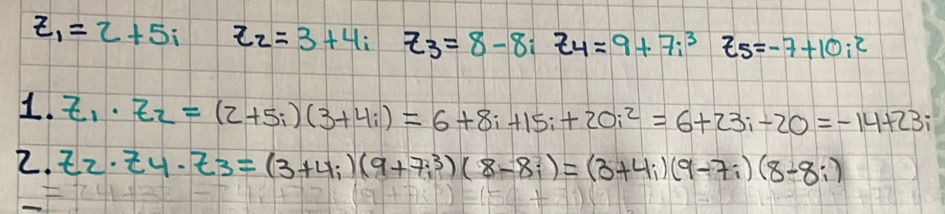 z₁ = 2 + 5i z₂ = 3 + 4i z₃ = 8 - 8i z₄ = 9 + 7i³ z₅ = -7 + 10i²
1. z₁ · z₂ = (2+5i)(3+4i) = 6 + 8i + 15i + 20i² = 6 + 23i - 20 = -14 + 23i
2. z₂ · z₄ · z₃ = (3+4i)(9+7i³)(8-8i) = (3+4i)(9-7i)(8-8i)